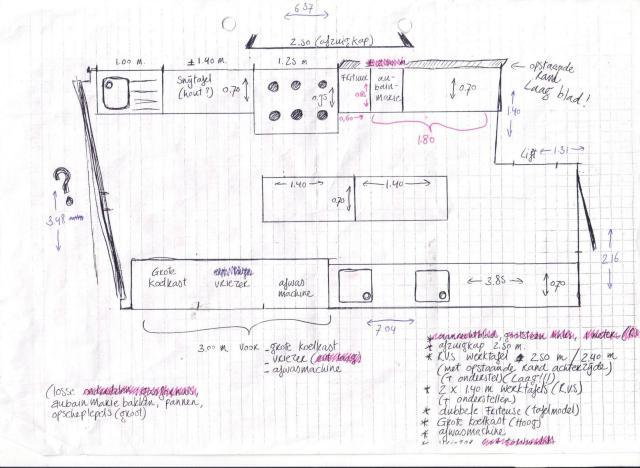 6.37
2.50 (afzuigkap)
1.00 m.
± 1.40 m.
1.25 m
Snijtafel
(hout?)
0.70
0.75
Friteuse
0.60
au-
bain-
marie
0.70
opstaande
Rand
Laag blad!
1.40
1.80
Lift
1.31
?
3.48
1.40
1.40
0.70
2.16
Grote
koelkast
vriezer
afwas
machine
3.85
0.70
7.04
3.00 m voor - grote koelkast
- vriezer
- afwasmachine
* afzuigkap 2.50 m.
* RVS werktafel 2.50 m / 2.40 m
(met opstaande Rand achterzijde)
(+ onderstel) (Laag!!!)
* 2 x 1.40 m werktafels (RVS)
(+ onderstellen)
* dubbele Friteuse (tafelmodel)
* Grote koelkast (Hoog)
* afwasmachine
(losse
aubain marie bakken, pannen,
opscheplepels (groot)